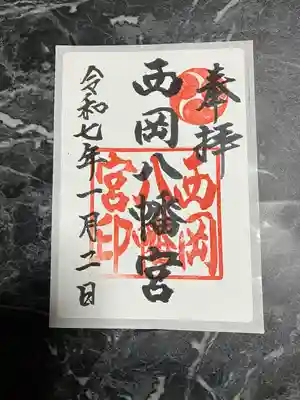 奉拝
西岡八幡宮
西岡
八幡
宮印
令和七年一月二日